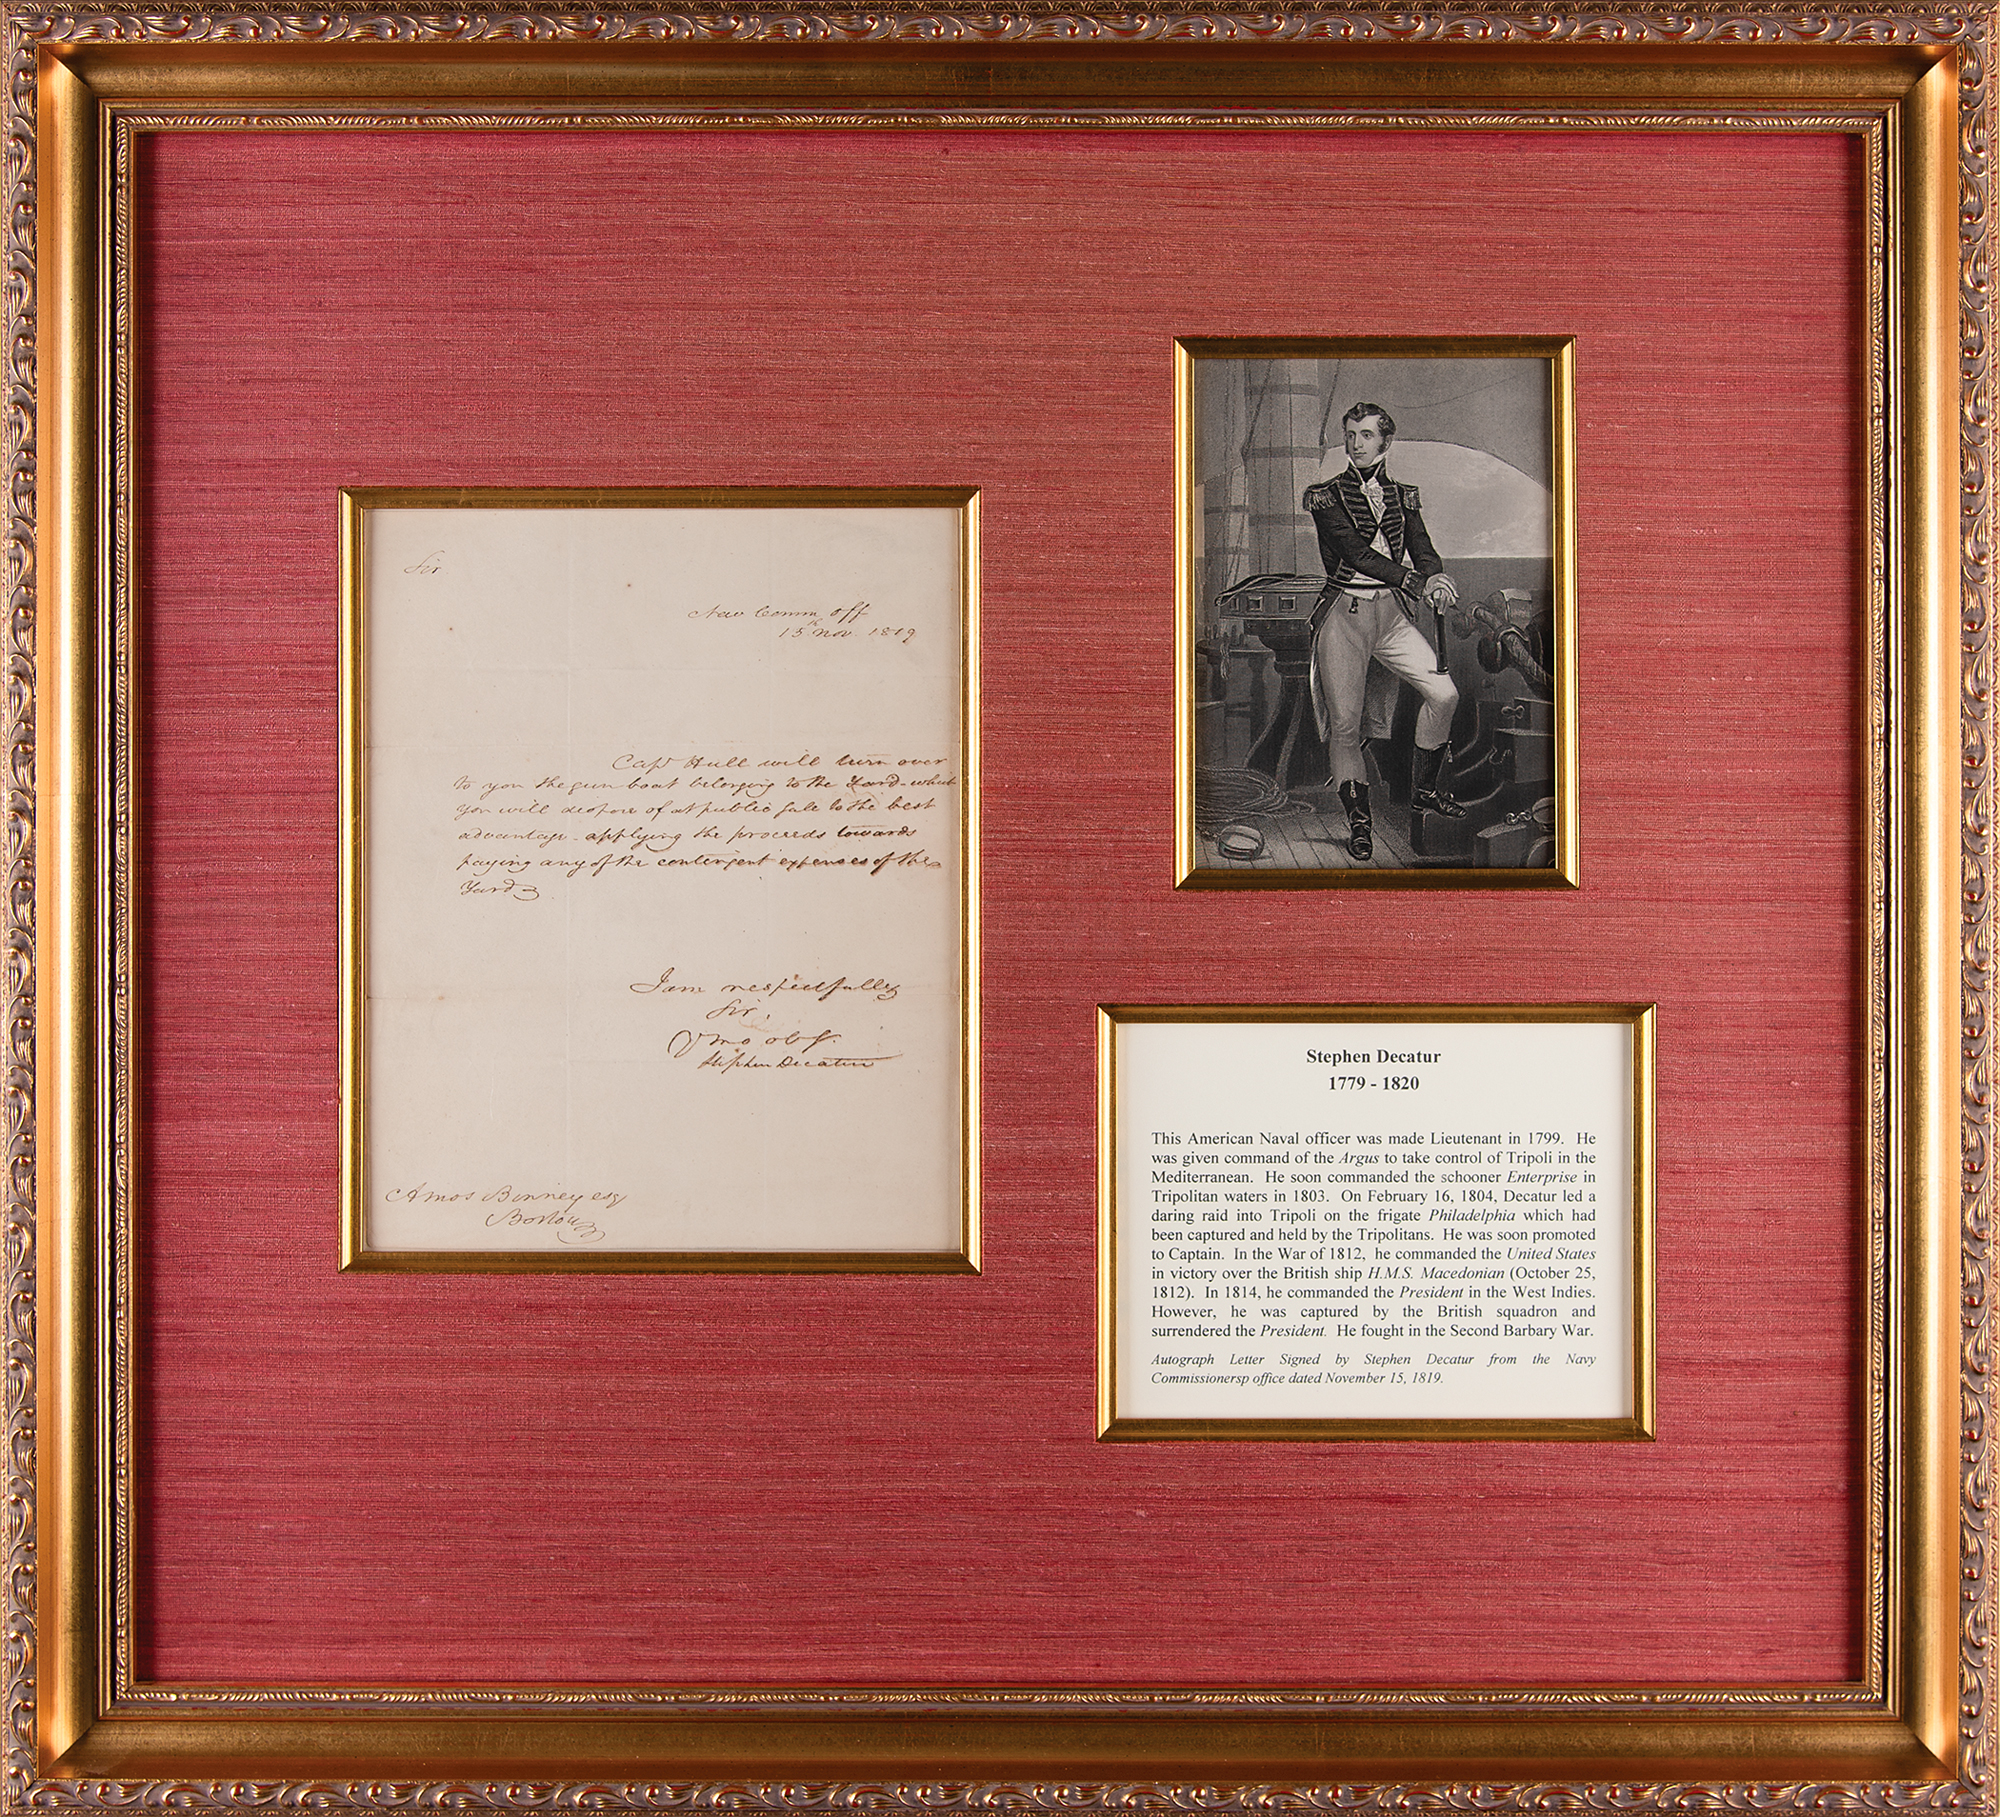 Sir
Nav Comm off
15th Nov. 1819
Capt Hull will turn over
to you the gun boat belonging to the Yard - which
you will dispose of at public sale to the best
advantage - applying the proceeds towards
paying any of the contingent expenses of the
Yard
I am respectfully
Sir,
Yr mo obt
Stephen Decatur
Amos Binney esq
Boston
Stephen Decatur
1779 - 1820
This American Naval officer was made Lieutenant in 1799. He
was given command of the Argus to take control of Tripoli in the
Mediterranean. He soon commanded the schooner Enterprise in
Tripolitan waters in 1803. On February 16, 1804, Decatur led a
daring raid into Tripoli on the frigate Philadelphia which had
been captured and held by the Tripolitans. He was soon promoted
to Captain. In the War of 1812, he commanded the United States
in victory over the British ship H.M.S. Macedonian (October 25,
1812). In 1814, he commanded the President in the West Indies.
However, he was captured by the British squadron and
surrendered the President. He fought in the Second Barbary War.
Autograph Letter Signed by Stephen Decatur from the Navy
Commissionersp office dated November 15, 1819.